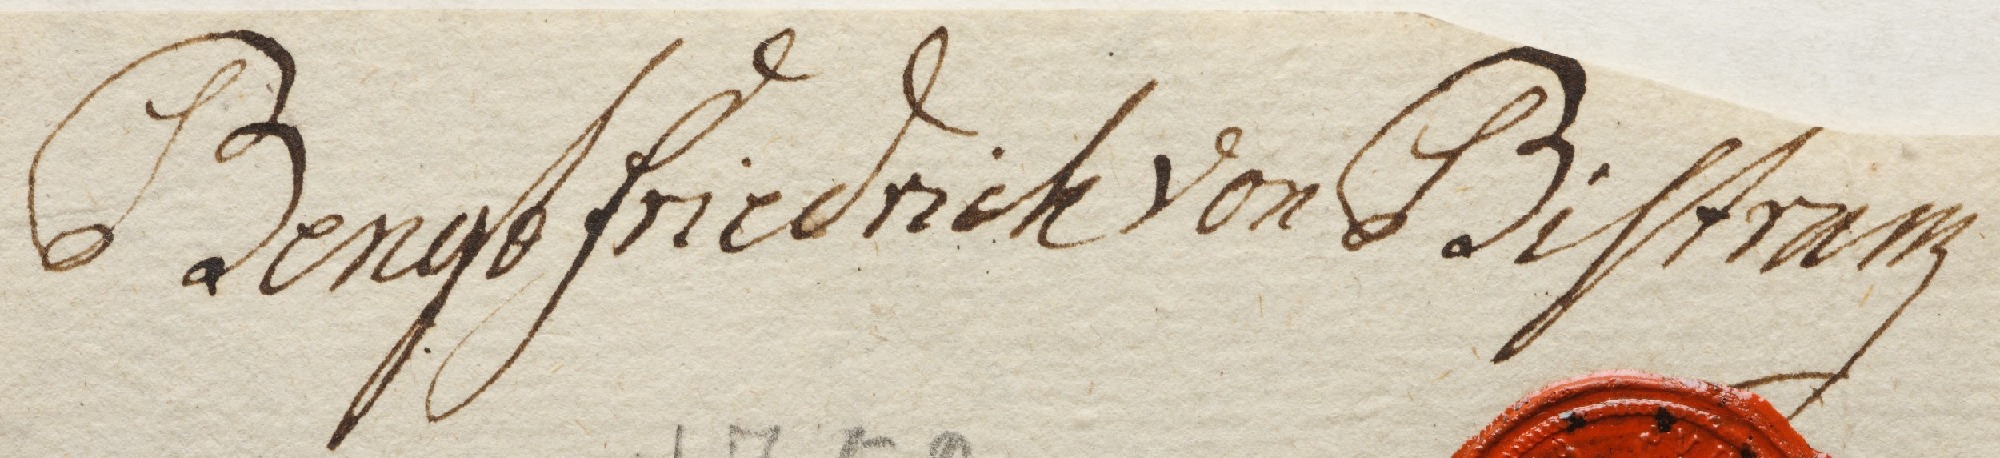 Bengt friedrich von Bistram